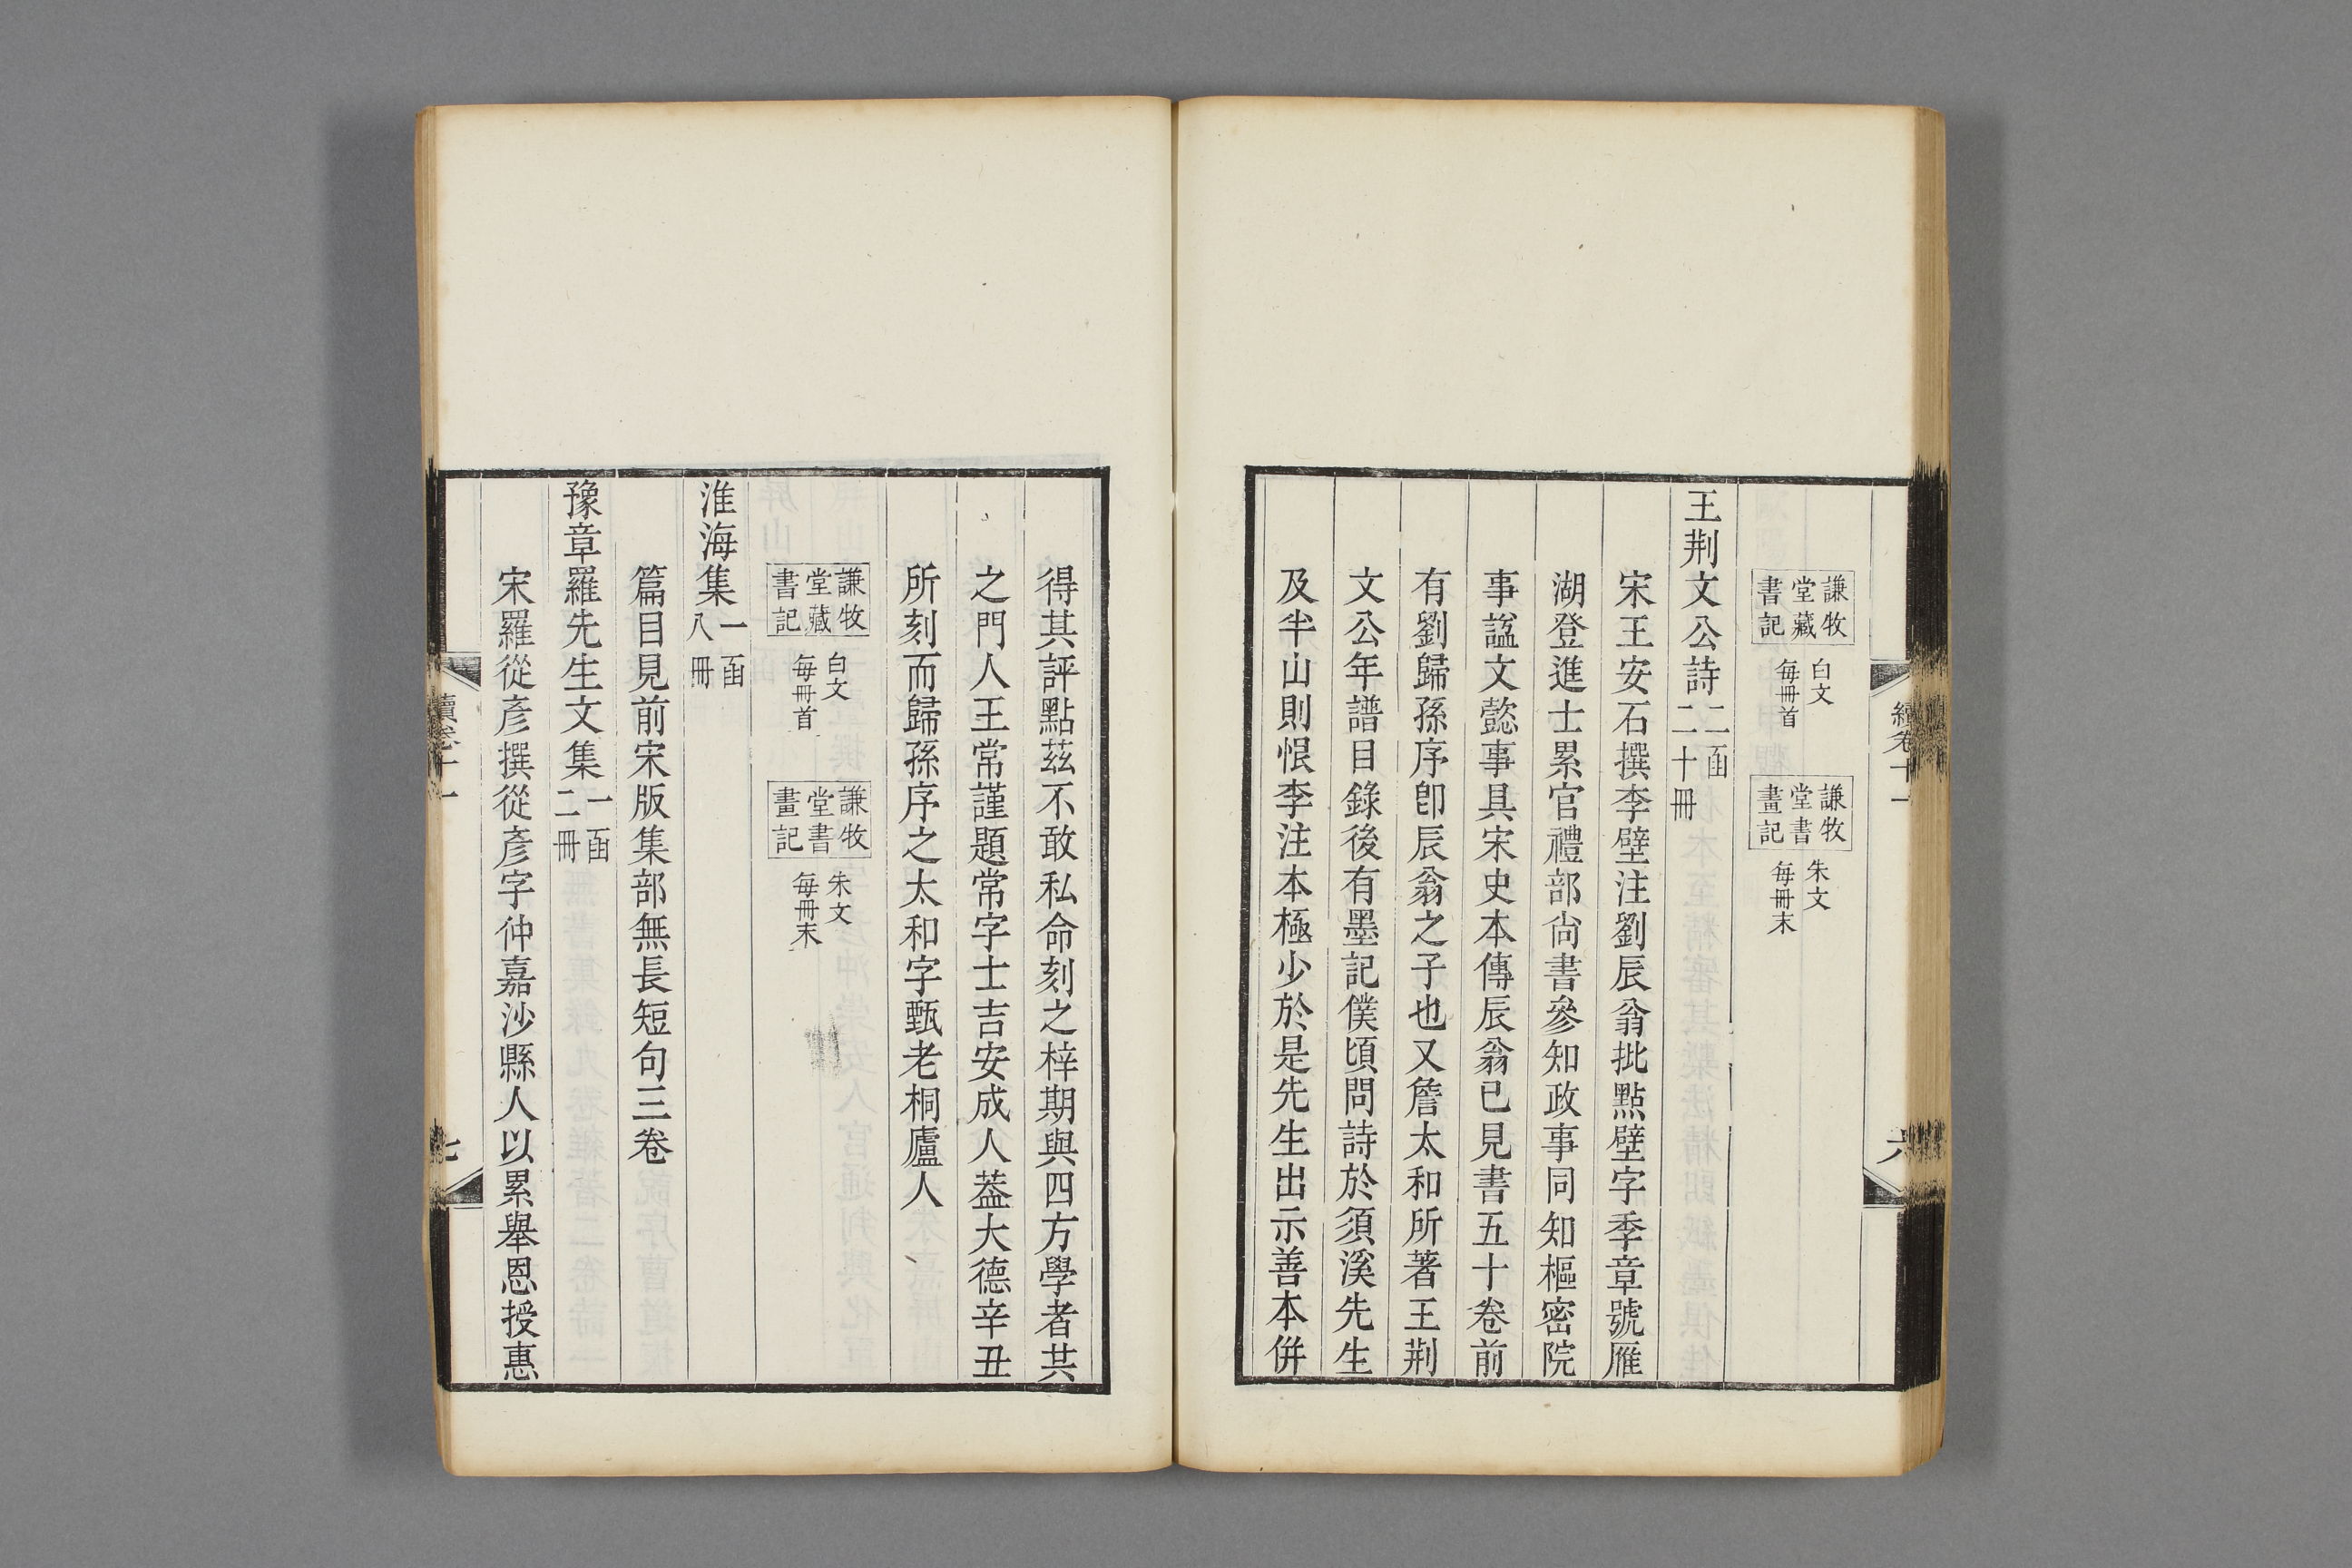 謙牧堂藏書記 白文每冊首 謙牧堂書畫記 朱文每冊末
王荆文公詩 二函二十冊
宋王安石撰李壁注劉辰翁批點壁字季章號雁
湖登進士累官禮部尚書參知政事同知樞密院
事諡文懿事具宋史本傳辰翁已見書五十卷前
有劉歸孫序卽辰翁之子也又詹太和所著王荆
文公年譜目錄後有墨記僕頃問詩於須溪先生
及半山則恨李注本極少於是先生出示善本併
得其評點茲不敢私命刻之梓期與四方學者共
之門人王常謹題常字士吉安成人葢大德辛丑
所刻而歸孫序之太和字甄老桐廬人
謙牧堂藏書記 白文每冊首 謙牧堂書畫記 朱文每冊末
淮海集 一函八冊
篇目見前宋版集部無長短句三卷
豫章羅先生文集 一函二冊
宋羅從彥撰從彥字仲嘉沙縣人以累舉恩授惠
續卷十一
六
續卷十一
七